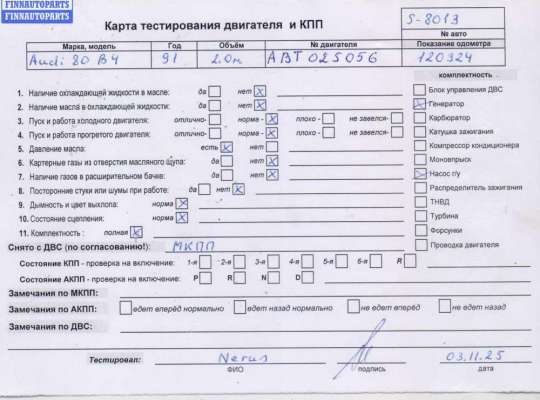 FINNAUTOPARTS
FINNAUTOPARTS
Карта тестирования двигателя и КПП
S-8013
№ авто
Марка, модель Год Объём № двигателя Показание одометра
Audi 80 B4 91 2.0м ABT 025056 120324
комплектность
1. Наличие охлаждающей жидкости в масле: да нет x
2. Наличие масла в охлаждающей жидкости: да нет x
3. Пуск и работа холодного двигателя: отлично- норма - x плохо - не завелся-
4. Пуск и работа прогретого двигателя: отлично- норма - x плохо - не завелся-
5. Давление масла: есть x нет
6. Картерные газы из отверстия масляного щупа: да нет x
7. Наличие газов в расширительном бачке: да нет x
8. Посторонние стуки или шумы при работе: да нет x
9. Дымность и цвет выхлопа: норма x
10. Состояние сцепления: норма x
11. Комплектность : полная x
Блок управления ДВС
x Генератор
Карбюратор
Катушка зажигания
Компрессор кондиционера
Моновпрыск
x Насос г/у
Распределитель зажигания
ТНВД
Турбина
Форсунки
Проводка двигателя
Снято с ДВС (по согласованию!): МКПП
Состояние КПП - проверка на включение: 1-я 2-я 3-я 4-я 5-я 6-я R
Состояние АКПП - проверка на включение: P R N D
Замечания по МКПП:
Замечания по АКПП: едет вперёд нормально едет назад нормально не едет вперёд не едет назад
Замечания по ДВС:
Тестировал: Nerus 03.11.25
ФИО подпись дата